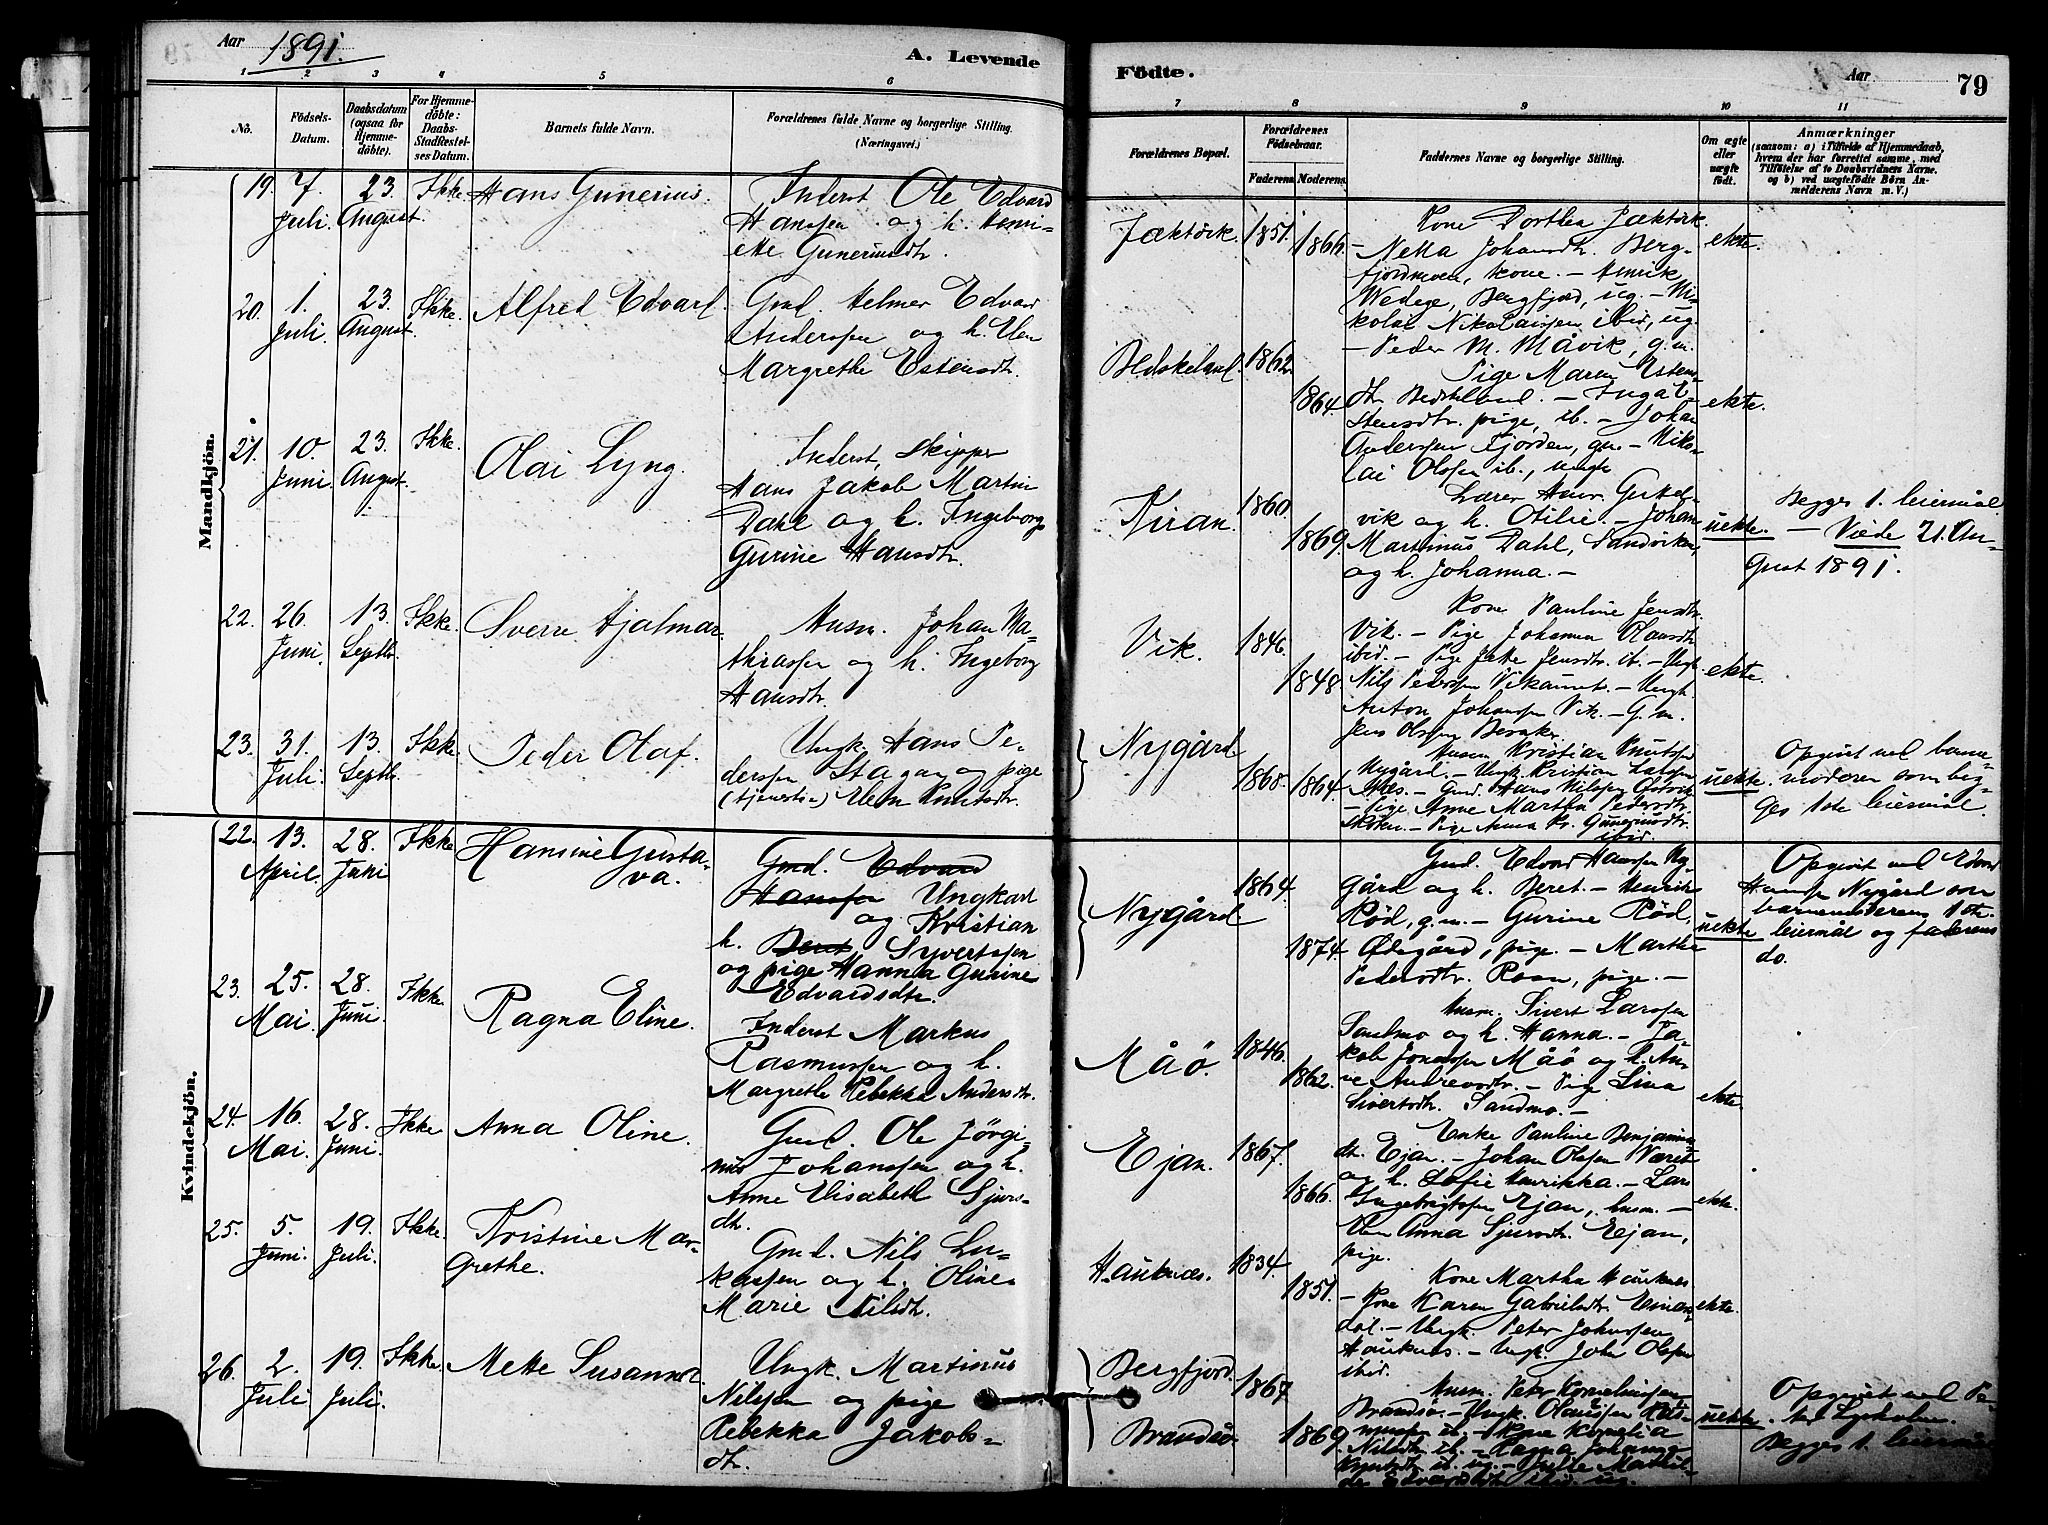 Aar 1891.
A. Levende
Födte.
Aar
79
1 2 3 4 5 6
7 8 9 10 11
No.
Födsels-
Datum.
Daabsdatum
(ogsaa for
Hjemme-
döbte).
For Hjemme-
döbte:
Daabs-
Stadfæstel-
ses Datum.
Barnets fulde Navn.
Forældrenes fulde Navne og borgerlige Stilling.
(Næringsvei.)
Forældrenes Bopæl.
Forældrenes
Födselsaar.
Faderens.
Moderens.
Faddernes Navne og borgerlige Stilling.
Om ægte
eller
uægte
födt.
Anmærkninger
(saasom: a) i Tilfælde af Hjemmedaab,
hvem der har forrettet samme, med
Tilföielse af to Daabsvidners Navne.
og b) ved uægtefödte Börn An-
melderens Navn m. V.)
Mandkjön.
19. 7. Juli. 23. August. Ikke. Hans Gunerius.
Inderst Ole Edvard
Hanssen og h. Henri-
ette Guneriusdtr.
Jæktvik. 1851. 1866.
Kone Dorthea Jæktvik.
– Netta Johansdtr. Berg-
fjordmoen, kone. – Henrik
Wedege, Bergfjord, ug. – Ni-
kolai Nikolaissen ibid, ug.
– Peder M. Måvik, g.m.
ekte.
20. 1. Juli. 23. August. Ikke. Alfred Edvard.
Gmd. Helmer Edvard
Anderssen og h. Elen
Margrethe Estensdtr.
Bedskeland. 1862. 1864.
Pige Maren Estens-
dtr. Bedskeland. –
pige, ib. – Johan
Anderssen Fjorden, gm. – Niko-
lai Olssen ib., ungk
ekte.
21. 10. Juni. 23. August. Ikke. Olai Lyng.
Inderst, Skipper
Hans Jakob Martin
Dahl og h. Ingeborg
Gurine Hansdtr.
Kiran. 1860. 1869.
Lærer
vik og h. Otilie. – Johan
Martinus Dahl, Sandviken,
og h. Johanna. –
uekte.
Begges 1. leiermål
– Viede 21. Au-
gust 1891.
22. 26. Juni. 13. Septbr. Ikke. Sverre Hjalmar.
Husm. Johan Ma-
thiassen og h. Ingeborg
Hansdtr.
Vik. 1846. 1848.
Kone Pauline Jensdtr.
Vik. – Pige Johanna Olausdtr
ibid. – Pige Jensdtr. ib. – Ungk.
Nils Pederssen Vikaunet. – Ungk.
Anton Johanssen Vik. – G.m.
Jens Olssen
ekte.
23. 31. Juli. 13. Septbr. Ikke. Peder Olaf.
Ungk. Hans Pe-
derssen Stagan og pige
(tjenestpi) Elen Knutsdtr.
Nygård. 1868. 1864.
Husm. Kristian Knutssen
Nygård. – Ungk. Kristian Larssen
Næs. – Gmd. Hans Nilssen
– Pige Anne Martha Pedersdtr.
– Pige Anna Guneriusdtr.
ibid.
uekte.
Opgivet ved barne-
moderen som beg-
ges 1ste leiermål.
Kvindekjön.
22. 13. April. 28. Juni Ikke Hansine Gusta-
va.
Gmd. Edvard
Hanssen Ungkarl
og Kristian
h. Beret Syvertssen
og pige Hanna Gurine
Edvardsdtr.
Nygård. 1864. 1874.
Gmd. Edvard Hanssen Ny-
gård og h. Beret. – Henrik
Röd, g.m. – Gurine Röd,
Ødegård, pige. – Martha
Pedersdtr. Roan, pige. –
uekte
Opgivet ved Edvard
Hanssen Nygård som
barnemoderens 1ste
leiermål og faderens
do.
23. 25. Mai. 28. Juni. Ikke Ragna Eline.
Inderst Markus
Rasmussen og h.
Margrethe Rebekka Andersdtr.
Måö. 1846. 1862.
Husm. Sivert Larssen
Sandmo og h. Hanna. – Ja-
kob Jonassen Måö og h. An-
ne Andreasdtr. – Pige Lina
Sivertsdtr. Sandmo. –
ekte.
24. 16. Mai. 28. Juni. Ikke Anna Oline.
Gmd. Ole Jörgi-
nus Johanssen og h.
Anne Elisabeth Sjurs-
dtr.
Ejan. 1867. 1866.
Enke Pauline Benjamins-
dtr. Ejan. – Johan Olssen Været
og h. Sofie Henrikka. – Lars
Ingebrigtssen Ejan, husm. –
Elen Anna Sjursdtr. Ejan,
pige.
ekte.
25. 5. Juni. 19. Juli. Ikke Kristine Mar-
grethe.
Gmd. Nils Lu-
kassen og h. Oline
Marie Nilsdtr.
Hauknes. 1834. 1851.
Kone Martha Hauknes
– Kone Karen Gabrielsdtr. Einar-
dal. – Ungk. Peter Johnssen
Hauknes. – Ungk. John Olssen
ibid.
ekte.
26. 2. Juli 19. Juli. Ikke. Mette Susanna.
Ungk. Martinus
Nilssen og pige
Rebekka Jakobs-
dtr.
Bergfjord. Brandsö. 1867. 1869.
Husm. Peter Korneliussen
Brandsö. – Ungk. Olaus Ras-
mussen ib. – Kone Kornelia
Nilsdtr. ib. – Ragna
ib. ug. –
Edvardsdtr. ibid. ug.
uekte.
Opgivet ved Pe-
ter Lysholm.
Begges 1. leiermål